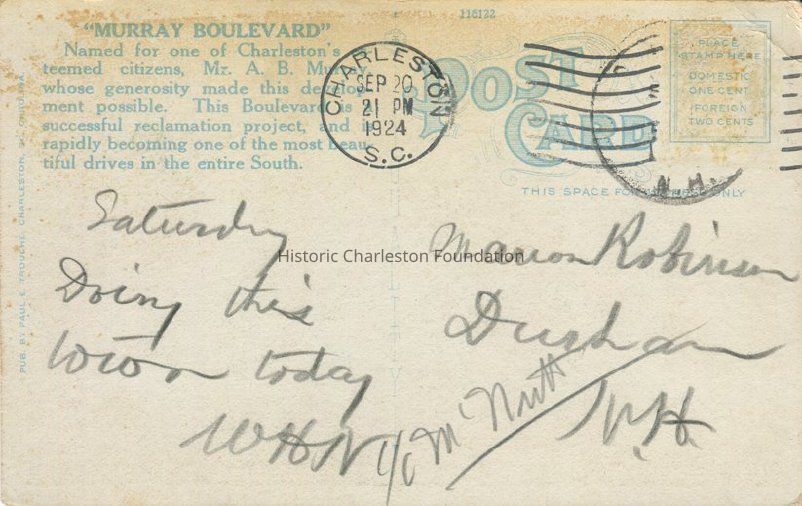 116122
"MURRAY BOULEVARD"
Named for one of Charleston's
teemed citizens, Mr. A. B. Mur
whose generosity made this de
ment possible. This Boulevard is
successful reclamation project, and i
rapidly becoming one of the most beau
tiful drives in the entire South.
CHARLESTON
SEP 20
21 PM
1924
S.C.
POST CARD
PLACE
STAMP HERE
DOMESTIC
ONE CENT
FOREIGN
TWO CENTS
N.H.
THIS SPACE FOR ADDRESS ONLY
PUB. BY PAUL E. TROUCHE, CHARLESTON, S. CAROLINA.
Saturday
Doing this
town today
WHN
Historic Charleston Foundation
Marion Robinson
Durham
N.H.
c/o McNutt